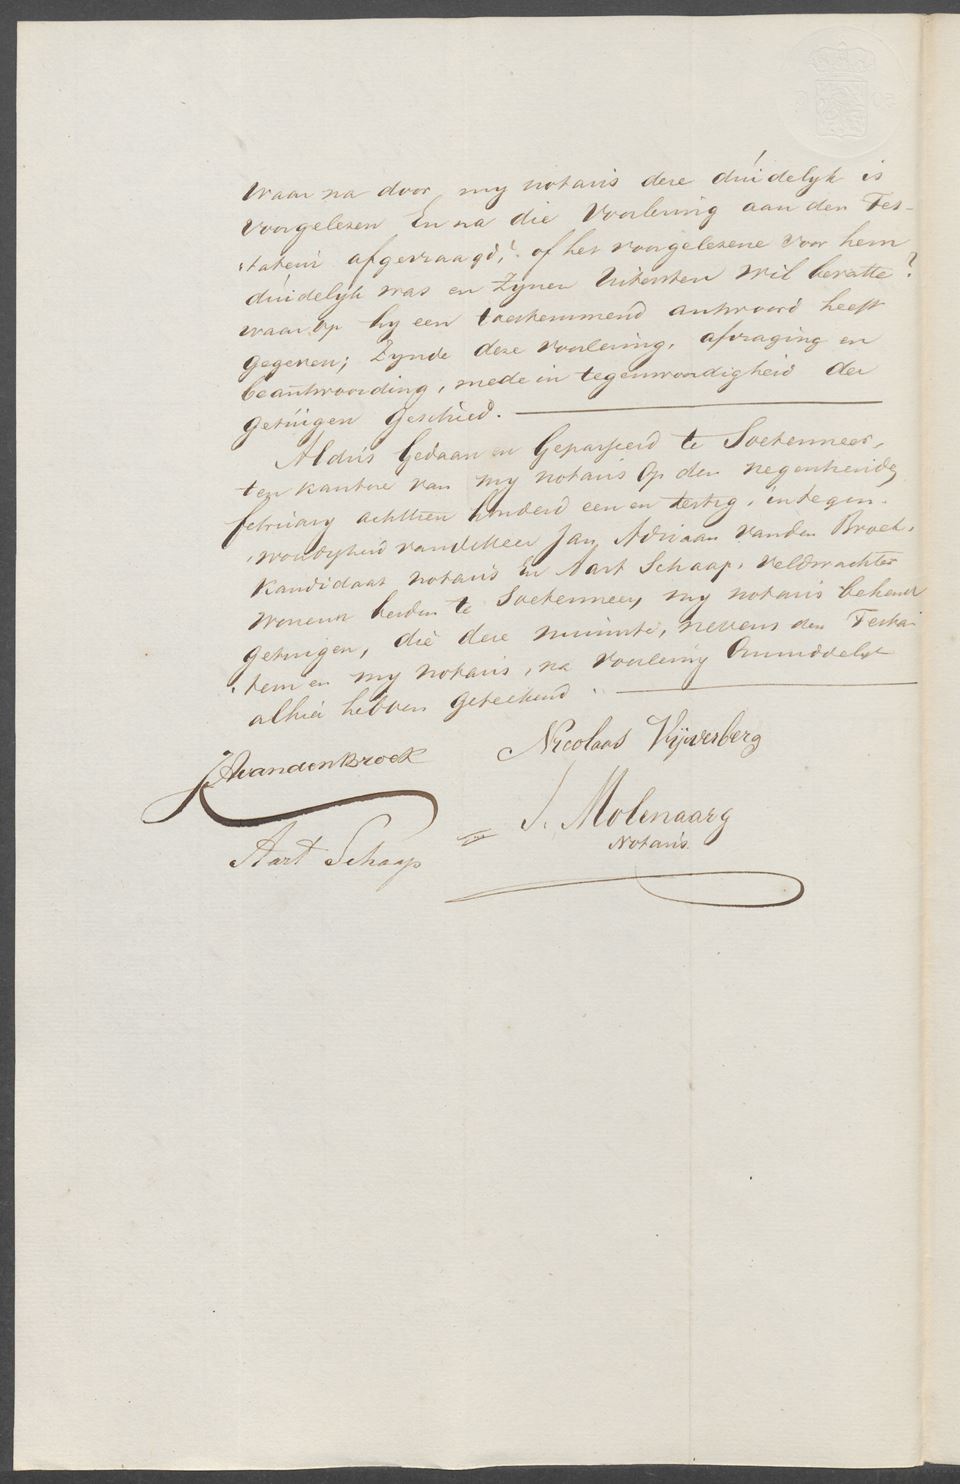 Waar na door my notaris deze duidelyk is
voorgelezen En na die Voorlezing aan den Tes-
tateur afgevraagd, of het voorgelezene voor hem
duidelyk was en Zynen Uitersten Wil bevatte?
waar op hy een toestemmend antwoord heeft
gegeven; Zynde deze voorlezing, afvraging en
beantwoording, mede in tegenwoordigheid der
getuigen geschied.
Aldus Gedaan en Gepasseerd te Soetermeer,
ten kantore van my notaris Op den negentienden
february achttien honderd een en
woordigheid van de Heer Jan Adriaan vanden Broek,
Kandidaat notaris En Aart Schaap, veldwachter
wonende beiden te Soetermeer, my notaris bekende
getuigen, die deze minute, nevens den Testa-
teur en my notaris, na voorlezing Onmiddelyk
alhier hebben geteekend.
JAvandenBroek
Nicolaas Vijverberg
J. Molenaar
Notaris
Aart Schaap